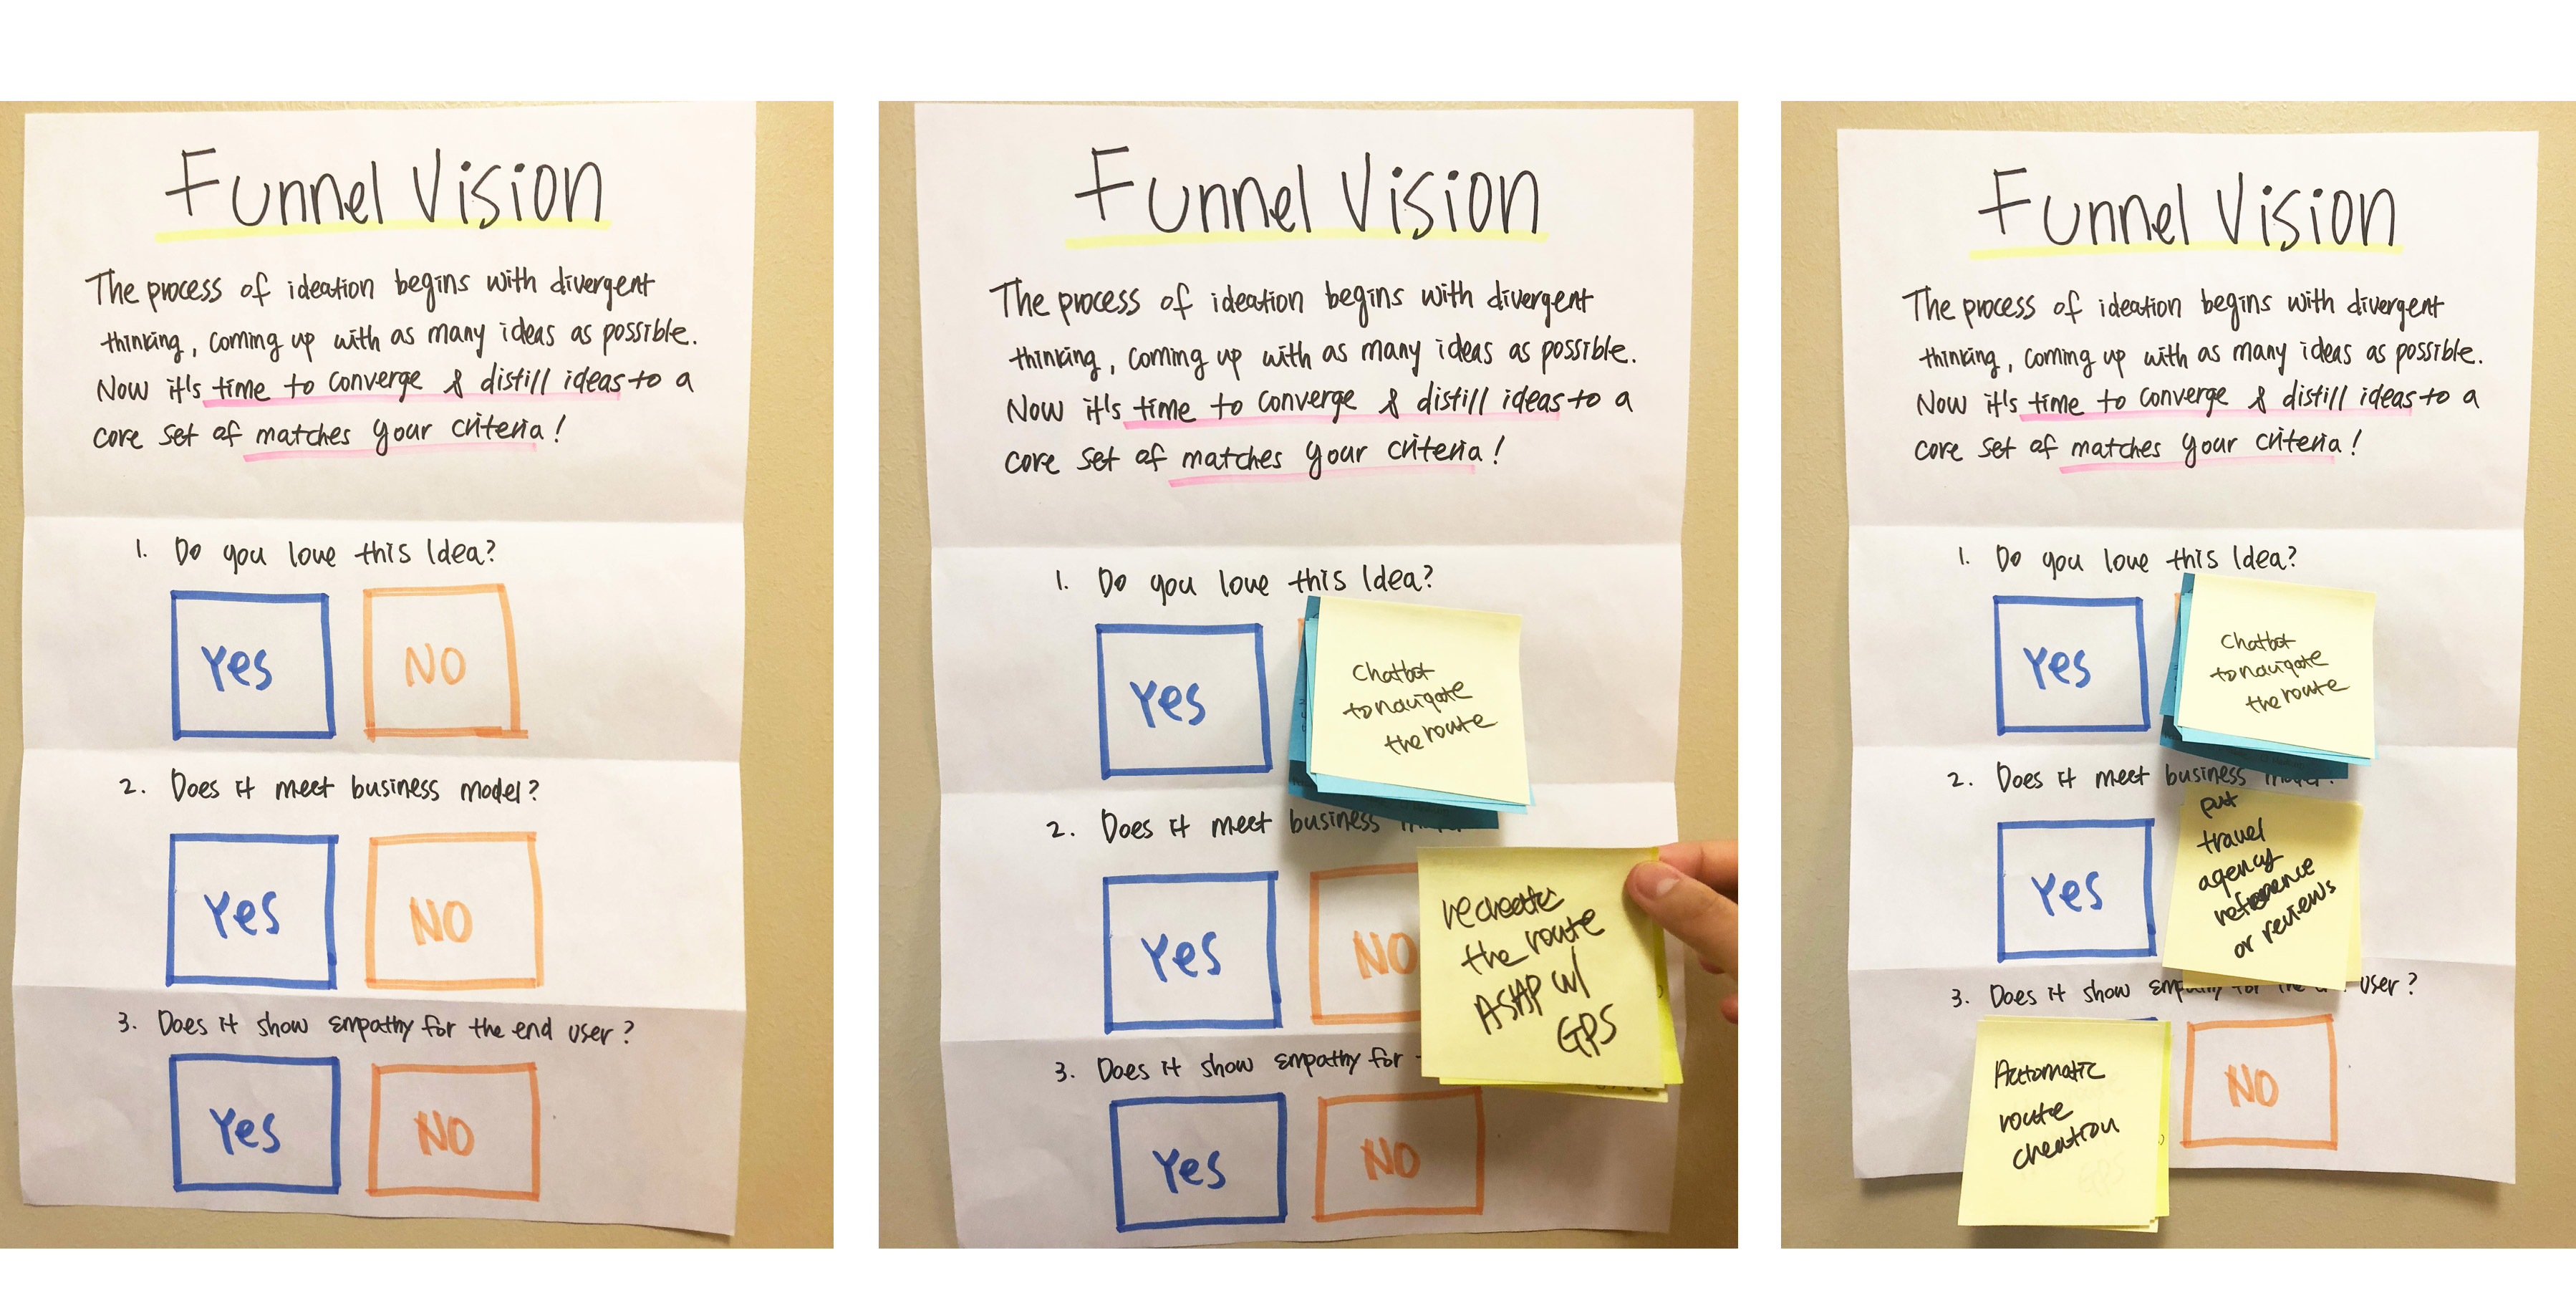 Funnel Vision
The process of ideation begins with divergent
thinking, coming up with as many ideas as possible.
Now it's time to converge & distill ideas to a
core set of matches your criteria!
1. Do you love this Idea?
Yes
NO
2. Does it meet business model?
Yes
NO
3. Does it show empathy for the end user?
Yes
NO
Funnel Vision
The process of ideation begins with divergent
thinking, coming up with as many ideas as possible.
Now it's time to converge & distill ideas to a
core set of matches your criteria!
1. Do you love this Idea?
Yes
Chatbot
to navigate
the route
2. Does it meet business
Yes
NO
recreate
the route
ASAP w/
GPS
3. Does it show empathy for
Yes
NO
Funnel Vision
The process of ideation begins with divergent
thinking, coming up with as many ideas as possible.
Now it's time to converge & distill ideas to a
core set of matches your criteria!
1. Do you love this Idea?
Yes
Chatbot
to navigate
the route
2. Does it meet business model?
Yes
put
travel
agency
reference
or reviews
3. Does it show empathy for user?
Automatic
route
creation
NO